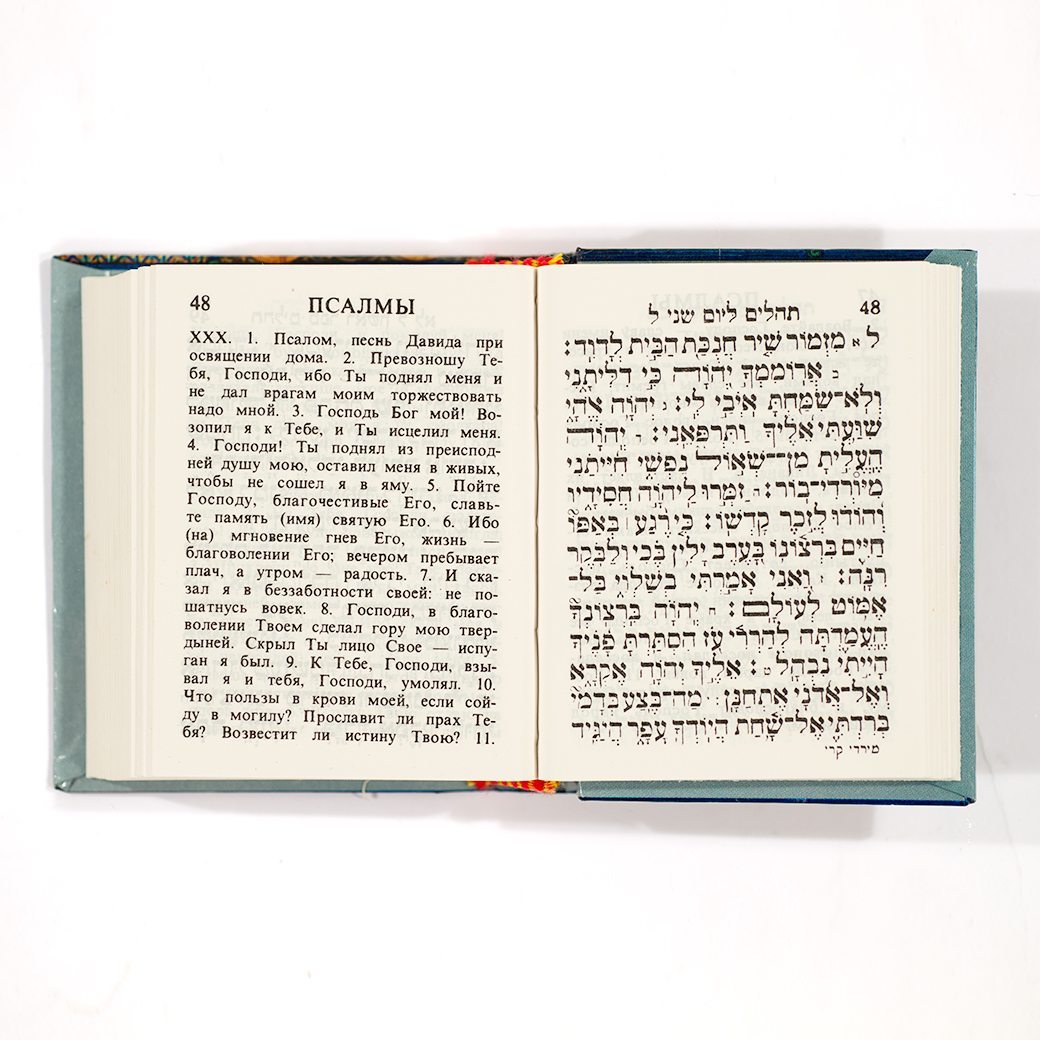 48 ПСАЛМЫ
XXX. 1. Псалом, песнь Давида при
освящении дома. 2. Превозношу Те-
бя, Господи, ибо Ты поднял меня и
не дал врагам моим торжествовать
надо мной. 3. Господь Бог мой! Во-
зопил я к Тебе, и Ты исцелил меня.
4. Господи! Ты поднял из преиспод-
ней душу мою, оставил меня в живых,
чтобы не сошел я в яму. 5. Пойте
Господу, благочестивые Его, славь-
те память (имя) святую Его. 6. Ибо
(на) мгновение гнев Его, жизнь —
благоволении Его; вечером пребывает
плач, а утром — радость. 7. И ска-
зал я в беззаботности своей: не по-
шатнусь вовек. 8. Господи, в благо-
волении Твоем сделал гору мою твер-
дыней. Скрыл Ты лицо Свое — испу-
ган я был. 9. К Тебе, Господи, взы-
вал я и тебя, Господи, умолял. 10.
Что пользы в крови моей, если сой-
ду в могилу? Прославит ли прах Те-
бя? Возвестит ли истину Твою? 11.
48 תהלים ליום שני ל
ל א מִזְמוֹר שִׁיר חֲנֻכַּת הַבַּיִת לְדָוִד׃
ב אֲרוֹמִמְךָ יְהוָה כִּי דִלִּיתָנִי
וְלֹא־שִׂמַּחְתָּ אֹיְבַי לִי׃ ג יְהוָה אֱלֹהָי
שִׁוַּעְתִּי אֵלֶיךָ וַתִּרְפָּאֵנִי׃ ד יְהוָה
הֶעֱלִיתָ מִן־שְׁאוֹל נַפְשִׁי חִיִּיתַנִי
מִיּוֹרְדִי־בוֹר׃ ה זַמְּרוּ לַיהוָה חֲסִידָיו
וְהוֹדוּ לְזֵכֶר קָדְשׁוֹ׃ כִּי רֶגַע בְּאַפּוֹ
חַיִּים בִּרְצוֹנוֹ בָּעֶרֶב יָלִין בֶּכִי וְלַבֹּקֶר
רִנָּה׃ ז וַאֲנִי אָמַרְתִּי בְשַׁלְוִי בַּל־
אֶמּוֹט לְעוֹלָם׃ ח יְהוָה בִּרְצוֹנְךָ
הֶעֱמַדְתָּה לְהַרְרִי עֹז הִסְתַּרְתָּ פָנֶיךָ
הָיִיתִי נִבְהָל׃ ט אֵלֶיךָ יְהוָה אֶקְרָא
וְאֶל־אֲדֹנָי אֶתְחַנָּן׃ מַה־בֶּצַע בְּדָמִי
בְּרִדְתִּי אֶל־שָׁחַת הֲיוֹדְךָ עָפָר הֲיַגִּיד
מירדי קרי